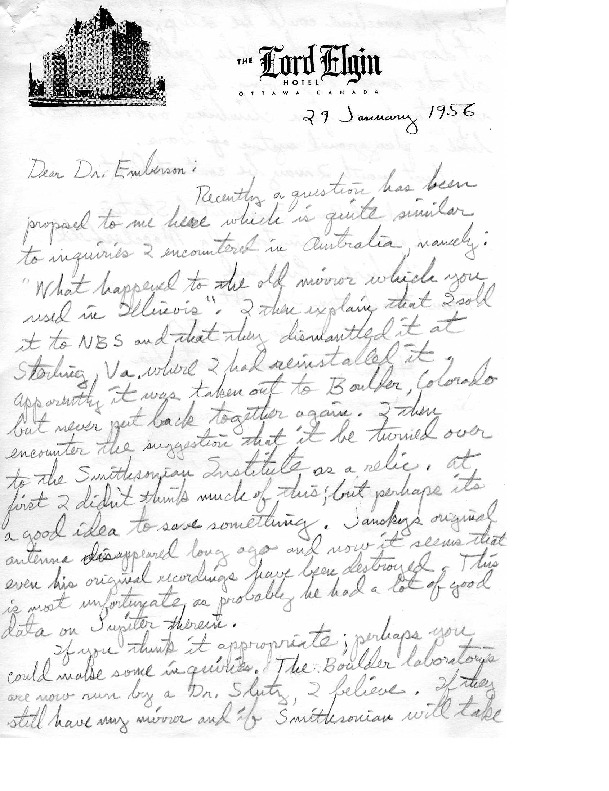 THE Lord Elgin
HOTEL
OTTAWA CANADA
29 January 1956
Dear Dr. Emberson:
Recently a question has been
proposed to me here which is quite similar
to inquiries I encountered in Australia, namely:
"What happened to the old mirror which you
used in Illinois". I then explain that I sold
it to NBS and that they dismantled it at
Sterling, Va. where I had reinstalled it.
Apparently it was taken out to Boulder, Colorado
but never put back together again. I then
encounter the suggestion that it be turned over
to the Smithsonian Institute as a relic. At
first I didn't think much of this; but perhaps its
a good idea to save something. Jansky's original
antenna disappeared long ago and now it seems that
even his original recordings have been destroyed. This
is most unfortunate, as probably he had a lot of good
data on Jupiter therein.
If you think it appropriate; perhaps you
could make some inquiries. The Boulder laboratories
are now run by a Dr. Slutz, I believe. If they
still have my mirror and if Smithsonian will take